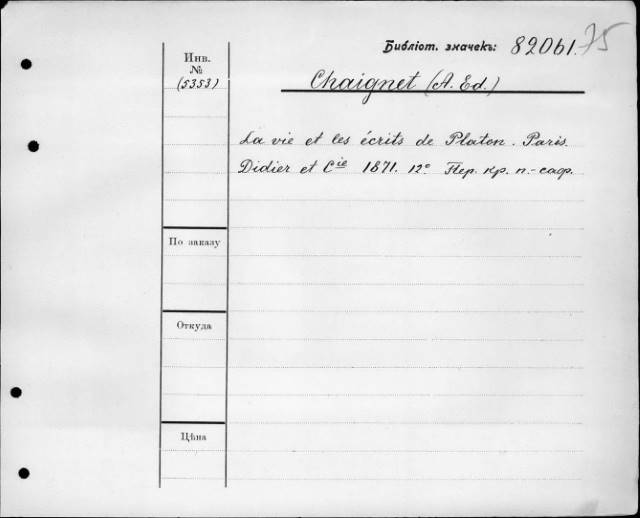 Библіот. значекъ: 82061.75
Инв.
№
(5353)
Chaignet (A. Ed.)
La vie et les écrits de Platon. Paris.
Didier et Cie 1871. 12° Пер. кр. п.-сафр.
По заказу
Откуда
Цѣна